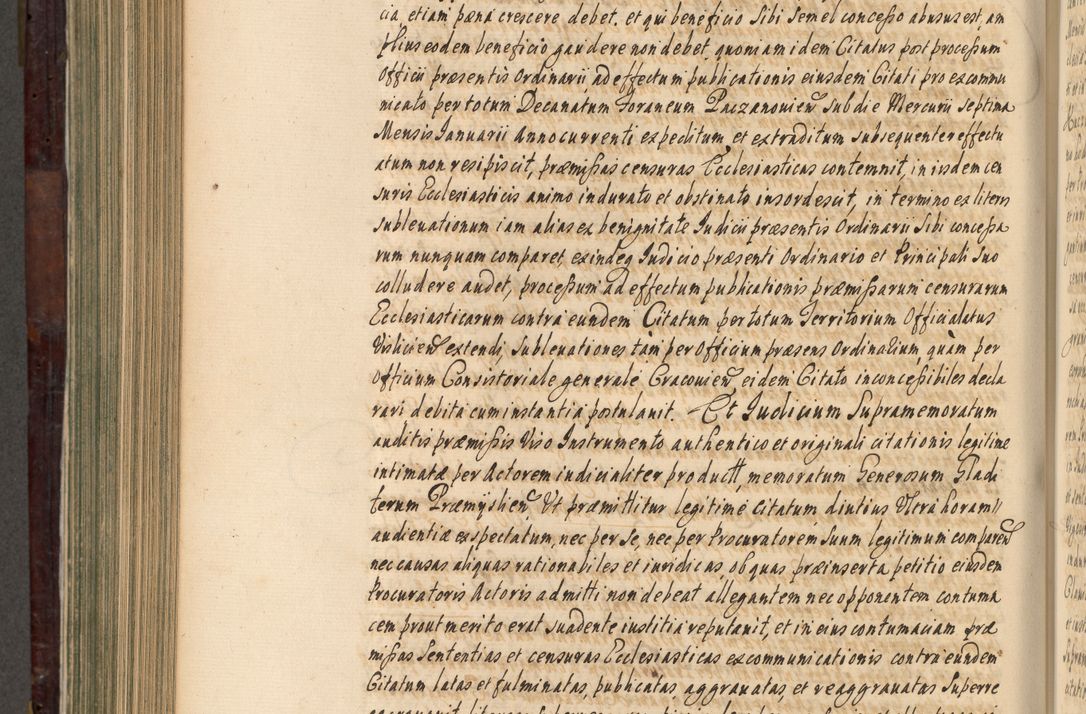 cia, etiam pæna crescere debet, et qui beneficio Sibi Semel concesso abusus est, am
plius eodem beneficio gaudere non debet, quoniam idem Citatus post processum
Officii præsentis Ordinarii, ad effectum publicationis eiusdem Citati pro excommu
nicato per totum Decanatum Foraneum Paczanovien̄ sub die Mercurii Septima
Mensis Ianuarii Anno currenti expeditum, et extraditum subsequenter effectu
atum non resipiscit, præmissas censuras Ecclesiasticas contemnit, in iisdem cen
suris Ecclesiasticis animo indurato et obstinato insordescit, in termino ex literis
subleuationum iam alias ex benignitate Iudicii præsentis Ordinarii Sibi concessa
rum nunquam comparet, exindeq Iudicio præsenti Ordinario et Principali suo
colludere audet, processum ad effectum publicationis præmissarum censurarum
Ecclesiasticarum contra eundem Citatum per totum Territorium Officialatus
Vislicien̄ extendi, Subleuationes tàm per Officium præsens Ordinarium quàm per
Officium Consistoriale generale Cracouien̄ eidem Citato inconcessibiles decla
rari debita cum instantia postulauit. Et Iudicium Supramemoratum
auditis præmissis Viso Instrumento authentico et originali citationis legitime
intimatæ per Actorem iudicialiter product, memoratum Generosum Gladi
ferum Præmyslien̄, Vt præmittitur legitime citatum diutius Vltra horam
audientiæ expectatum, nec per se, nec per Procuratorem suum legitimum comparen̄
nec causas aliquas rationabiles et iuridicas, ob quas præinserta petitio eiusdem
Procuratoris Actoris admitti non debeat allegantem nec opponentem contuma
cem prout merito erat suadente iustitia reputauit, et in eius contumaciam præ
missas Sententias et censuras Ecclesiasticas excommunicationis contra eundem
Citatum latas et fulminatas, publicatas, aggrauatas, et reaggrauatas Superre